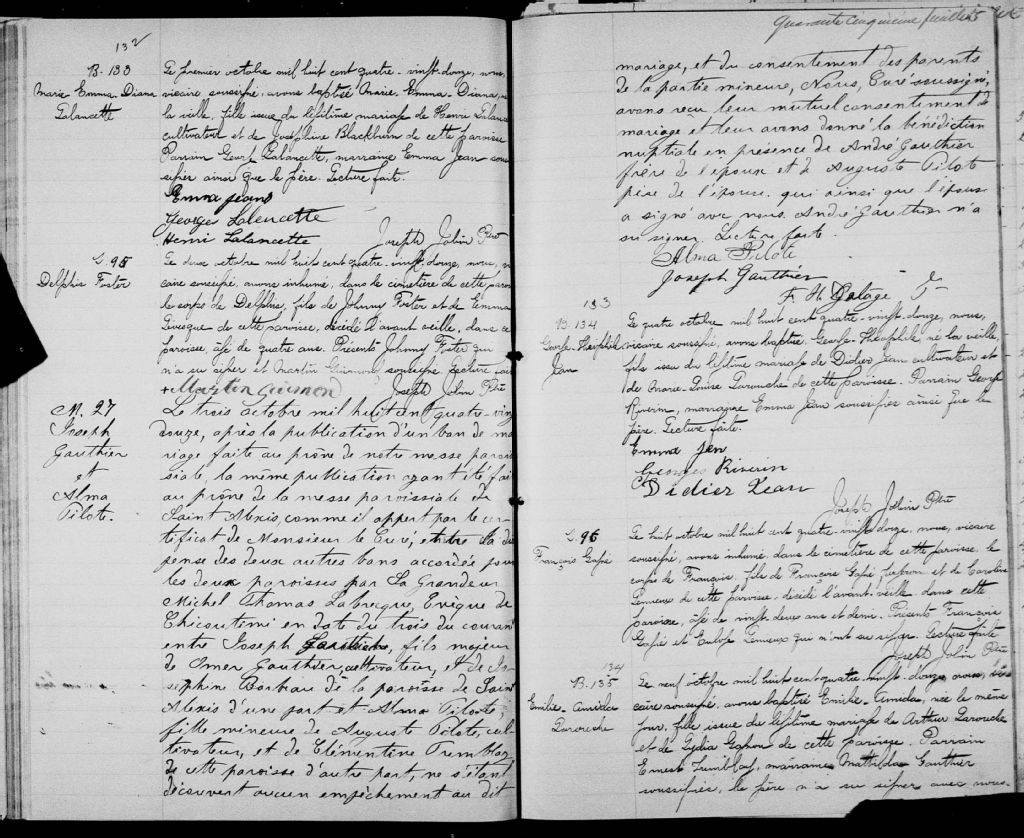 132
B. 133
Marie Emma Diana
Lalancette
Le premier octobre mil huit cent quatre-vingt-douze, nous,
vicaire soussigné, avons baptisé Marie, Emma-Diana, née
la veille, fille issue du légitime mariage de Henri Lalance
cultivateur et de Joséphine Blackburn de cette paroisse
Parrain Georg. Lalancette, marraine Emma Jean sous
signer ainsi que le père. Lecture faite.
Emma Jean
Georges Lalencette
Henri Lalancette
Joseph Jobin Ptre
S. 95
Delphis Foster
Le deux octobre mil huit cent quatre-vingt-douze, nous, vi
caire soussigné, avons inhumé, dans le cimetière de cette paroi
le corps de Delphis, fils de Johnny Foster et de Emma
Levesque de cette paroisse, décédé l'avant veille, dans ce
paroisse, âgé de quatre ans. Présents Johnny Foster qui
n'a su signer et Martin Guimond soussigné. Lecture faite
+ Martin Guimond
Joseph Jobin Ptre
M. 27
Joseph
Gauthier
et
Alma
Pilote.
Le trois octobre mil huit cent quatre-ving
douze, après la publication d'un ban de ma
riage faite au prône de notre messe parois
siale, la même publication ayant été fai
au prône de la messe paroissiale de
Saint Alexis, comme il appert par le cer-
tificat de Monsieur le Curé, et vu la dis
pense des deux autres bans accordée pour
les deux paroisses par Sa Grandeur
Michel Thomas Labrecque, Evêque de
Chicoutimi en date du trois du courant
entre Joseph Gauthier, fils majeur
de Omer Gauthier, cultivateur, et de Jo
sephine Barbeau de la paroisse de Saint
Alexis d'une part et Alma Pilote,
fille mineure de Auguste Pilote, cul-
tivateur, et de Clémentine Tremblay
de cette paroisse d'autre part, ne s'étant
découvert aucun empêchement au dit
Quarante cinquième feuillet
mariage, et du consentement des parents
de la partie mineure, Nous, Curé soussigné,
avons reçu leur mutuel consentement de
mariage et leur avons donné la bénédiction
nuptiale en présence de André Gauthier
frère de l'époux et de Auguste Pilote
père de l'épouse, qui ainsi que l'époux
a signé avec nous. André Gauthier n'a
su signer. Lecture faite.
Alma Pilote
Joseph Gauthier
F. H. Delâge
133
B. 134
George-Théophile
Jean
Le quatre octobre mil huit cent quatre-vingt-douze, nous,
vicaire soussigné, avons baptisé George-Théophile, né la veille,
fils issu du légitime mariage de Didier Jean cultivateur et
de Marie-Louise Larouche de cette paroisse. Parrain George
Riverin, marraine Emma Jean soussignés ainsi que le
père. Lecture faite.
Emma Jen
Georges Riverin
Didier Jean
Joseph Jobin Ptre
S. 96
François Gagné
Le huit octobre mil huit cent quatre-vingt-douze, nous, vicaire
soussigné, avons inhumé, dans le cimetière de cette paroisse, le
corps de François, fils de François Gagné forgeron et de Caroline
Lemieux de cette paroisse, décédé l'avant-veille dans cette
paroisse, âgé de vingt-deux ans et demi. Présents François
Gagné et Lemieux qui n'ont su signer. Lecture faite
Joseph Jobin Ptre
134
B. 135
Emilie-Amida
Larouche
Le neuf octobre mil huit cent quatre-vingt-douze, nous, vi
caire soussigné, avons baptisé Emilie-Amida, née le même
jour, fille issue du légitime mariage de Arthur Larouche
et de Lydia Gagnon de cette paroisse. Parrain
Ernest Tremblay, marraine Mathilda Gauthier
soussignés, le père n'a su signer avec nous.